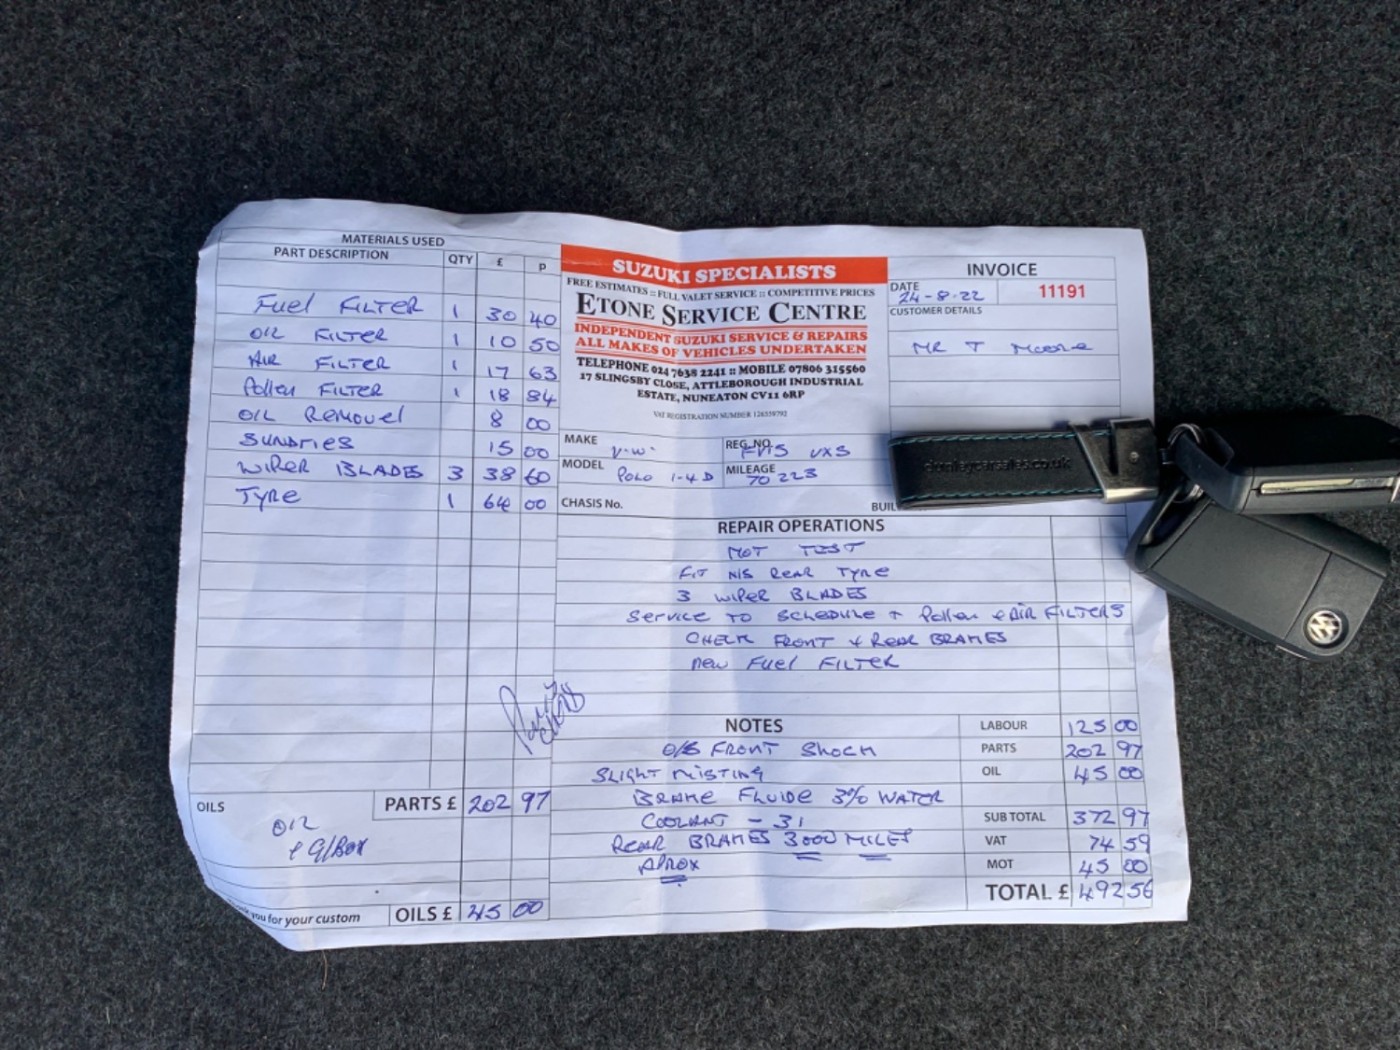 MATERIALS USED
PART DESCRIPTION QTY £ p
Fuel FILTER 1 30 40
OIL FILTER 1 10 50
AIR FILTER 1 17 63
Pollen FILTER 1 18 84
OIL Removel 8 00
SUNDRIES 15 00
WIPER BLADES 3 38 60
TYRE 1 64 00
OILS
PARTS £ 202 97
OIL
+ G/BOX
you for your custom
OILS £ 45 00
SUZUKI SPECIALISTS
FREE ESTIMATES :: FULL VALET SERVICE :: COMPETITIVE PRICES
ETONE SERVICE CENTRE
INDEPENDENT SUZUKI SERVICE & REPAIRS
ALL MAKES OF VEHICLES UNDERTAKEN
TELEPHONE 024 7638 2241 :: MOBILE 07806 315560
17 SLINGSBY CLOSE, ATTLEBOROUGH INDUSTRIAL
ESTATE, NUNEATON CV11 6RP
VAT REGISTRATION NUMBER
INVOICE
DATE
24-8-22 11191
CUSTOMER DETAILS
MR T Moore
MAKE V.W. REG. NO. VXS
MODEL POLO 1-4 D MILEAGE 70 223
CHASIS No.
REPAIR OPERATIONS
MOT TEST
FIT N/S REAR TYRE
3 WIPER BLADES
SERVICE TO SCHEDULE + Pollen + AIR FILTERS
CHECK FRONT + REAR BRAKES
new Fuel FILTER
NOTES
O/S FRONT SHOCK
SLIGHT MISTING
BRAKE FLUIDE 3% WATER
COOLANT - 31
REAR BRAKES 3000 MILES
APROX
LABOUR 125 00
PARTS 202 97
OIL 45 00
SUB TOTAL 372 97
VAT 74 59
MOT 45 00
TOTAL £ 492 56